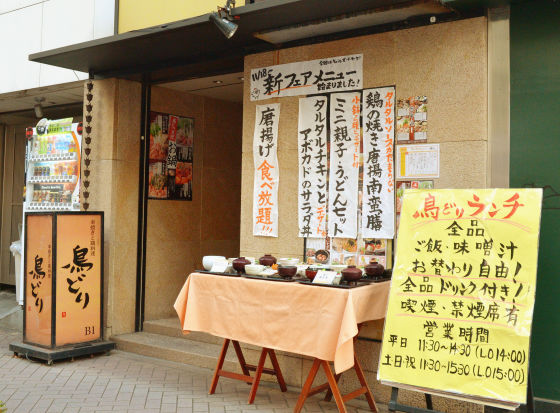 11/18～
新フェアメニュー
始まりました！
唐揚げ食べ放題！！
タルタルチキンと
アボカドのサラダ丼
ミニ親子とうどんセット
鶏の焼き唐揚南蛮膳
鳥どり
B1
鳥どり
鳥どりランチ
全品
ご飯・味噌汁
お替わり自由！
全品ドリンク付き！
喫煙・禁煙席有
営業時間
平日 11:30～14:30(LO14:00)
土日祝 11:30～15:30(LO15:00)